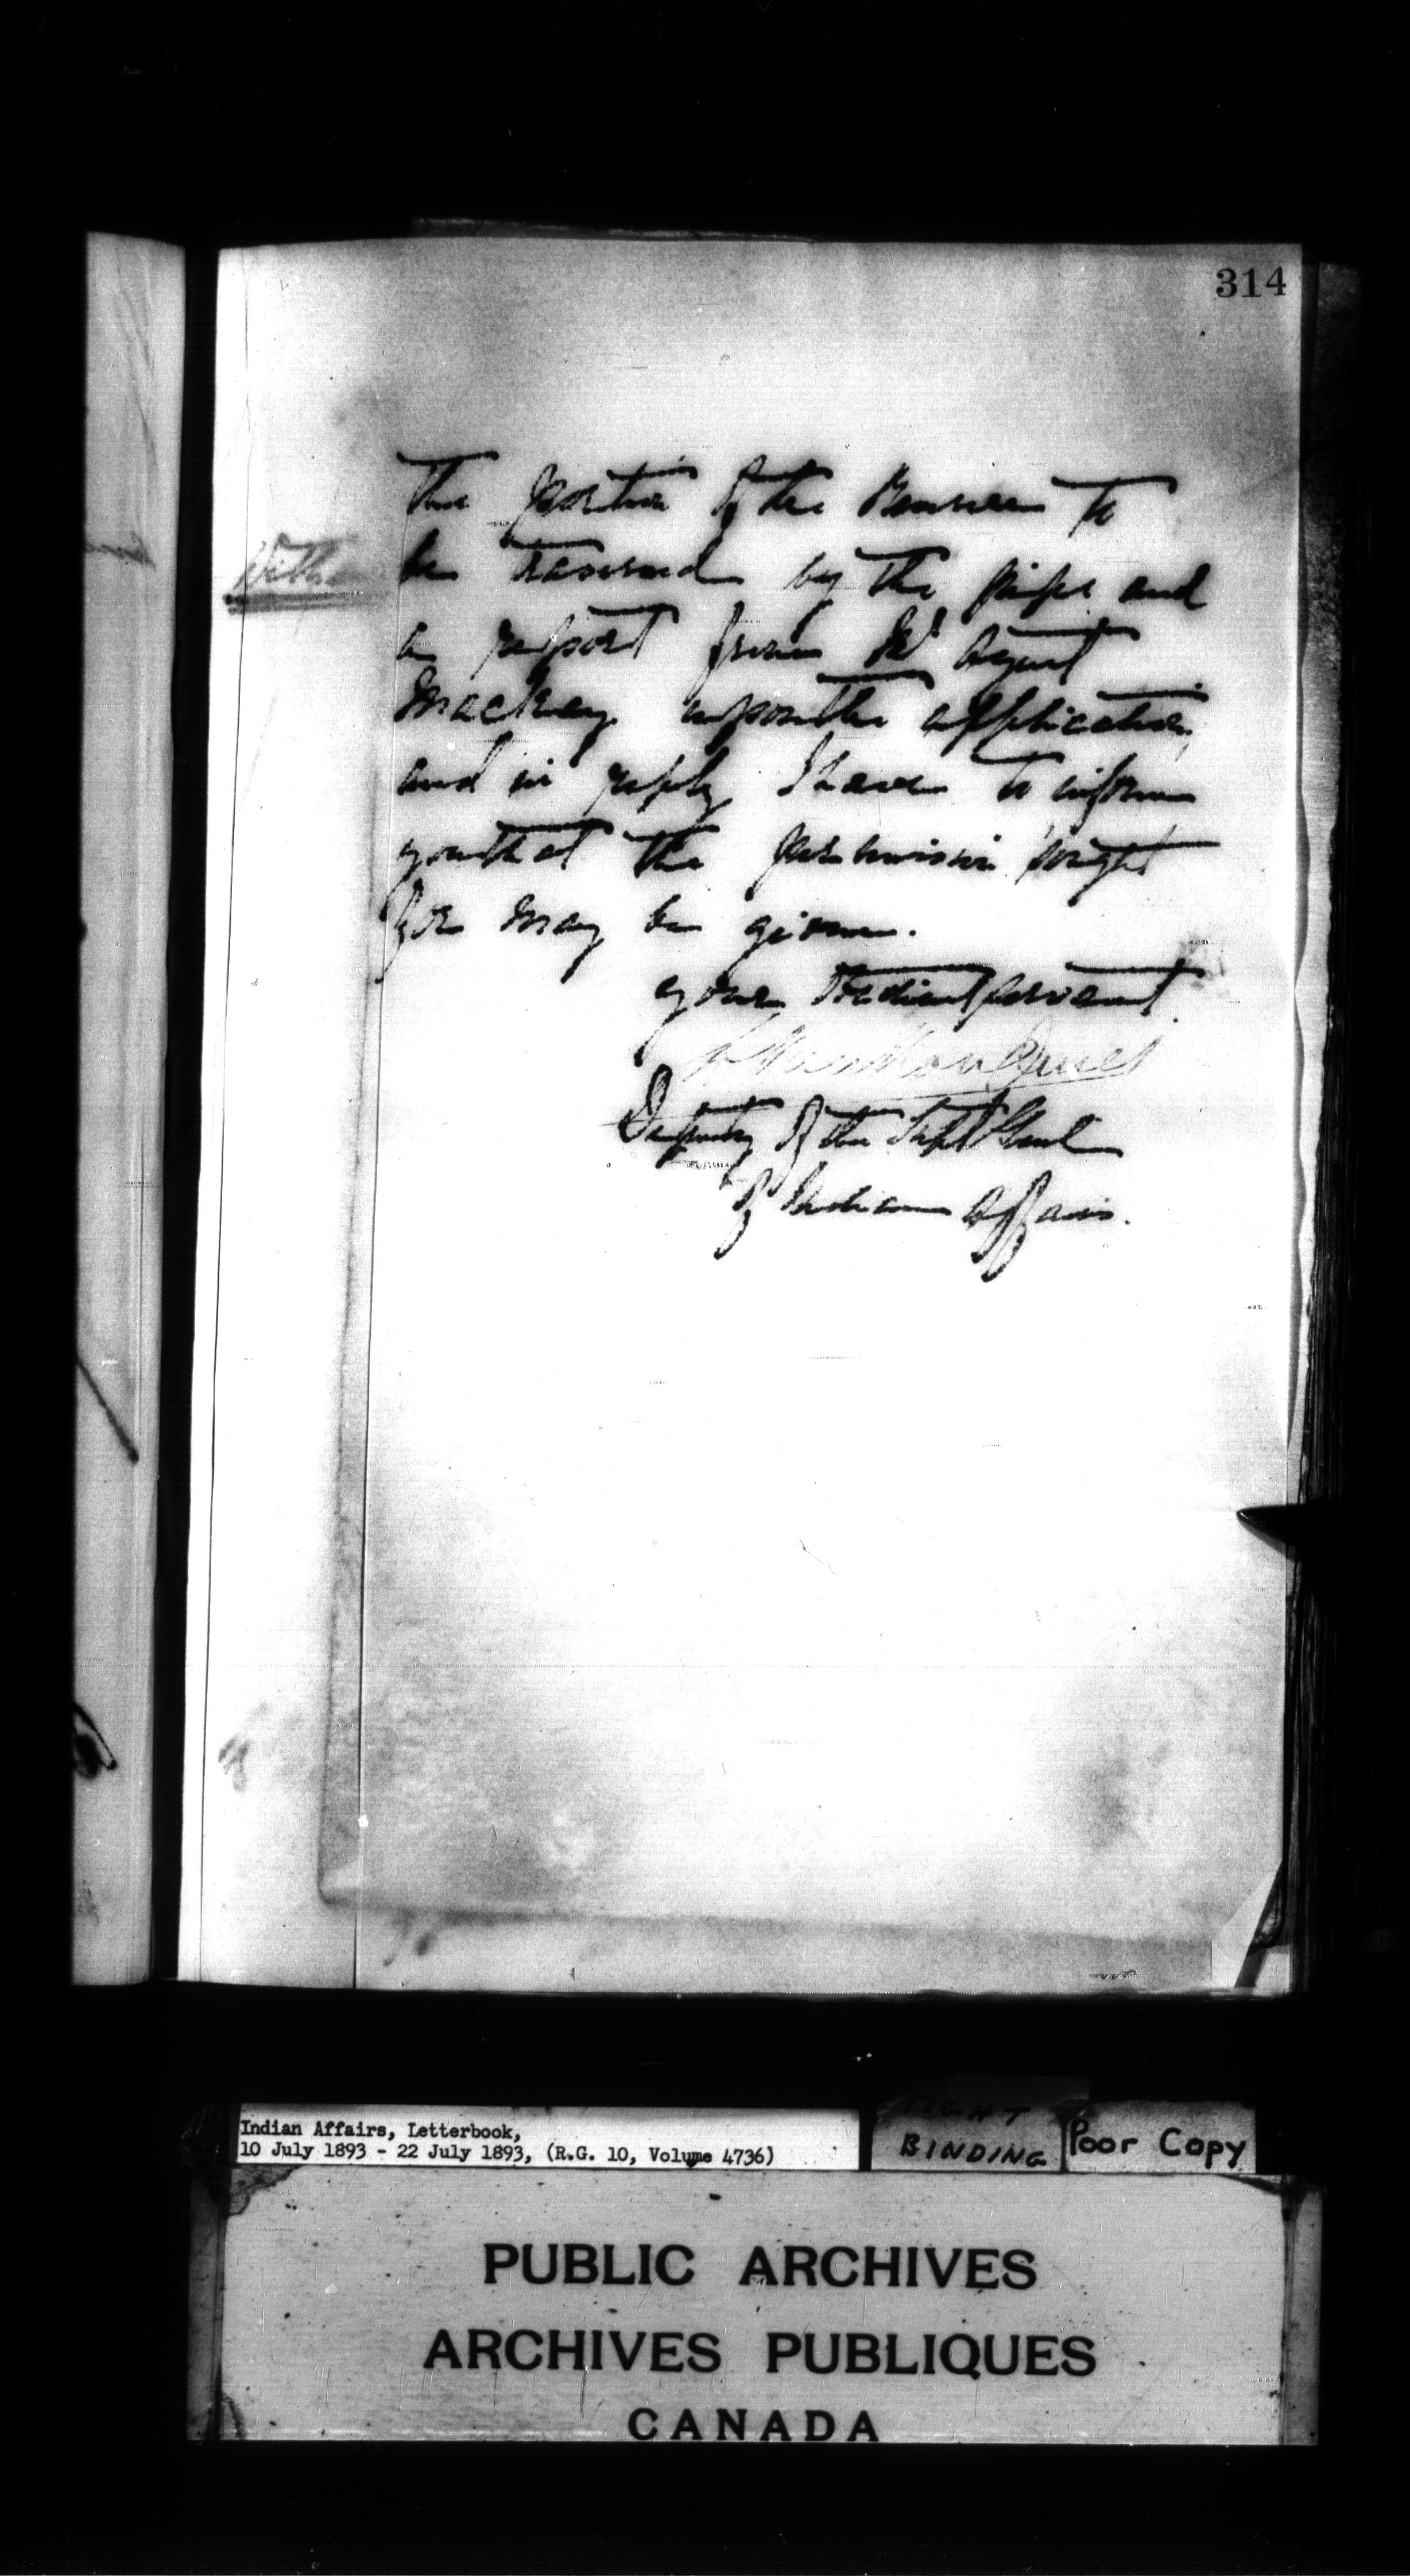 314
the portion of the Reserve to
be traversed by the pipe and
a report from Agent
Mackay upon the application,
and in reply I have to inform
you that the permission sought
for may be given.
your obedient servant
L Vankoughnet
Deputy of the Supt Genl
of Indian Affairs.
Indian Affairs, Letterbook,
10 July 1893 - 22 July 1893, (R.G. 10, Volume 4736)
TIGHT
BINDING
Poor Copy
PUBLIC ARCHIVES
ARCHIVES PUBLIQUES
CANADA